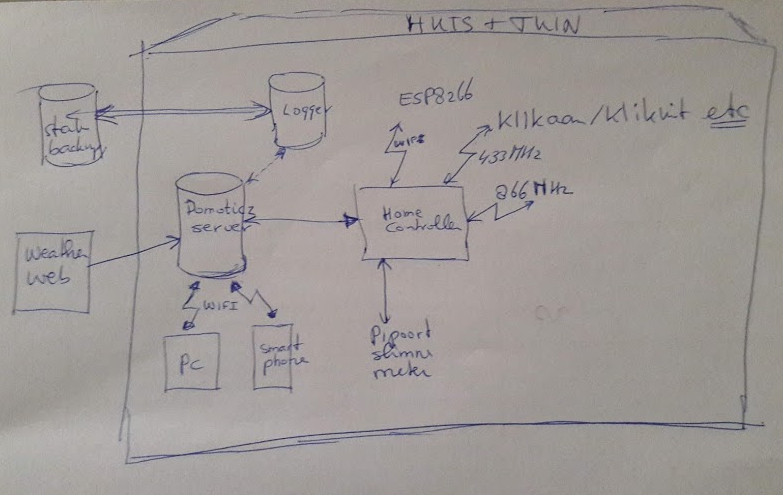 HUIS + TUIN
Logger
ESP8266
Klikaan/Klikuit etc
backup
WIFI
433 MHz
866 MHz
Domoticz
server
Home
Controller
Weather
web
WIFI
PC
smart
phone
P1poort
slimme
meter